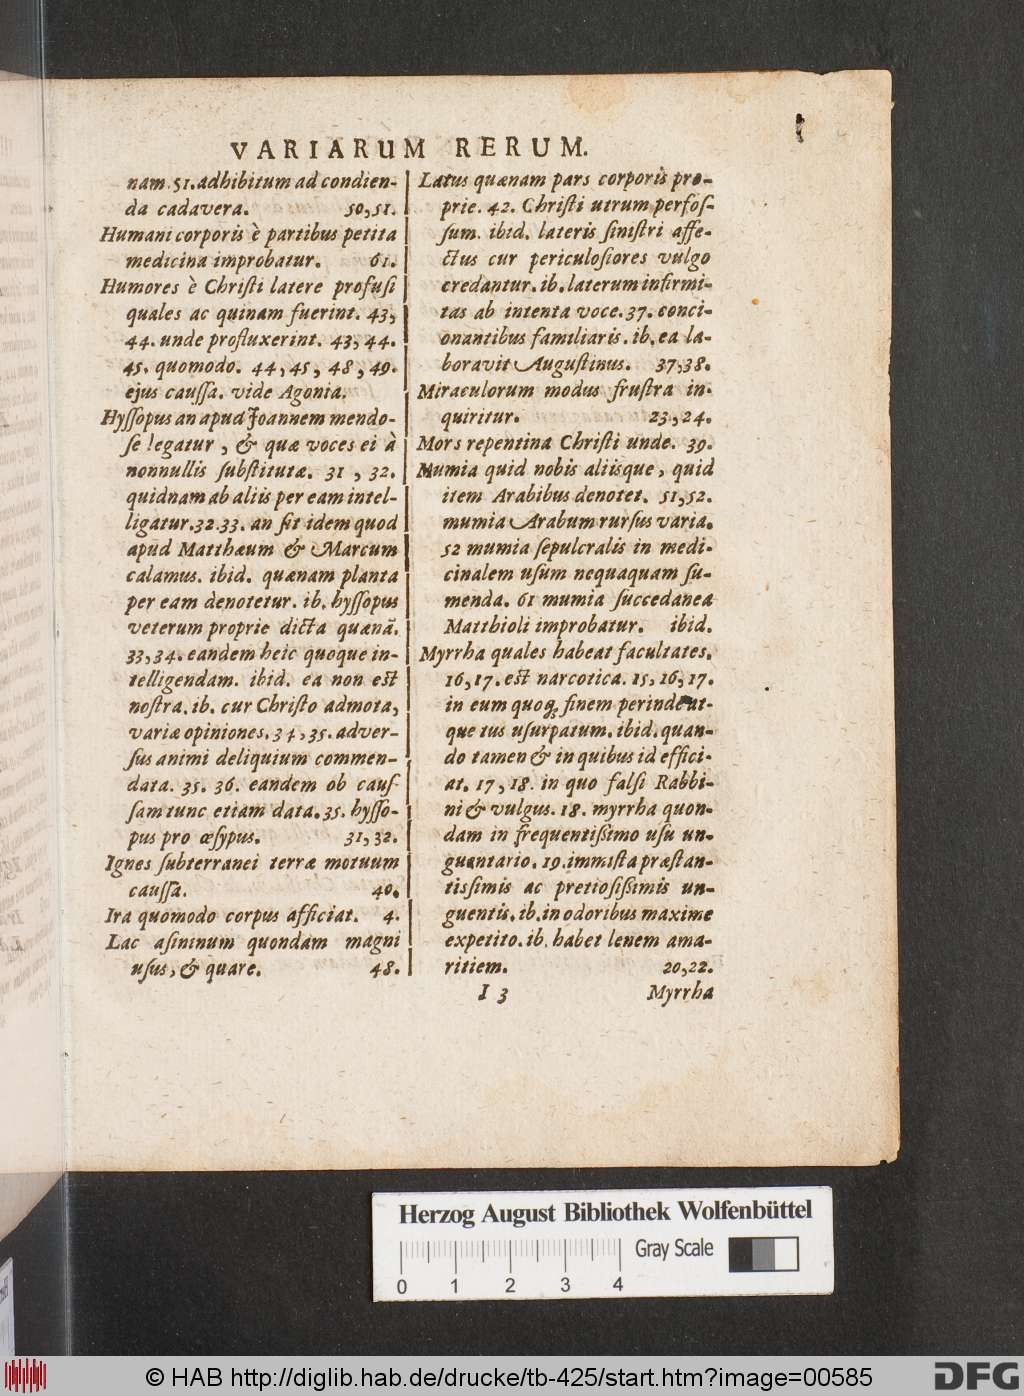 VARIARUM RERUM.
nam. 51. adhibitum ad condien-
da cadavera. 50,51.
Humani corporis è partibus petita
medicina improbatur. 61.
Humores è Christi latere profusi
quales ac quinam fuerint. 43,
44. unde profluxerint. 43, 44.
45. quomodo. 44, 45, 48, 49.
ejus caussa. vide Agonia.
Hyssopus an apud Joannem mendo-
se legatur, & quæ voces ei à
nonnullis substitutæ. 31, 32.
quidnam ab aliis per eam intel-
ligatur. 32.33. an sit idem quod
apud Matthæum & Marcum
calamus. ibid. quænam planta
per eam denotetur. ib. hyssopus
veterum proprie dicta quænã.
33, 34. eandem heic quoque in-
telligendam. ibid. ea non est
nostra. ib. cur Christo admota,
variæ opiniones. 34, 35. adver-
sus animi deliquium commen-
data. 35. 36. eandem ob caus-
sam tunc etiam data. 35. hysso-
pus pro œsypus. 31, 32.
Ignes subterranei terræ motuum
caussa. 40.
Ira quomodo corpus afficiat. 4.
Lac asininum quondam magni
usus, & quare. 48.
Latus quænam pars corporis pro-
prie. 42. Christi utrum perfos-
sum. ibid. lateris sinistri affe-
ctus cur periculosiores vulgo
credantur. ib. laterum infirmi-
tas ab intenta voce. 37. conci-
onantibus familiaris. ib. ea la-
boravit Augustinus. 37,38.
Miraculorum modus frustra in-
quiritur. 23,24.
Mors repentina Christi unde. 39.
Mumia quid nobis aliisque, quid
item Arabibus denotet. 51,52.
mumia Arabum rursus varia.
52 mumia sepulcralis in medi-
cinalem usum nequaquam su-
menda. 61 mumia succedanea
Matthioli improbatur. ibid.
Myrrha quales habeat facultates.
16, 17. est narcotica. 15, 16, 17.
in eum quoq; finem perinde at-
que tus usurpatum. ibid. quan-
do tamen & in quibus id effici-
at. 17, 18. in quo falsi Rabbi-
ni & vulgus. 18. myrrha quon-
dam in frequentissimo usu un-
guentario. 19. immista præstan-
tissimis ac pretiosissimis un-
guentis. ib. in odoribus maxime
expetito. ib. habet lenem ama-
ritiem. 20,22.
I 3 Myrrha
Herzog August Bibliothek Wolfenbüttel
Gray Scale
0 1 2 3 4
© HAB http://diglib.hab.de/drucke/tb-425/start.htm?image=00585
DFG